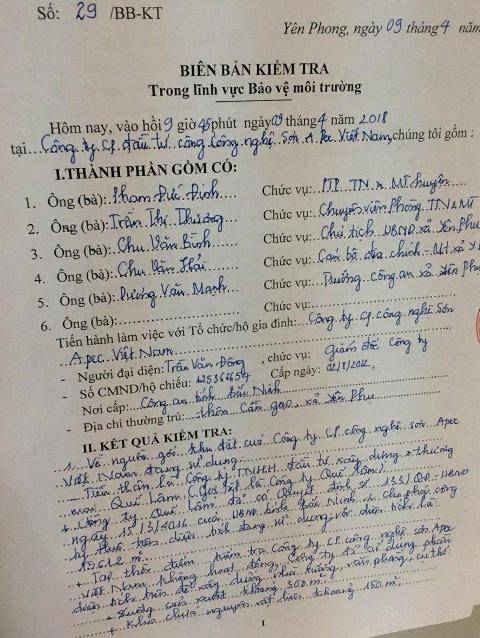 Số: 29 /BB-KT
Yên Phong, ngày 09 tháng 4 năm
BIÊN BẢN KIỂM TRA
Trong lĩnh vực Bảo vệ môi trường
Hôm nay, vào hồi 9 giờ 45 phút ngày 09 tháng 4 năm 2018
tại Công ty CP đầu tư công công nghệ Sơn A pec Việt Nam, chúng tôi gồm :
I.THÀNH PHẦN GỒM CÓ:
1. Ông (bà): Phạm Đức Định Chức vụ: PTP TN & MT huyện
2. Ông (bà): Trần Thị Thương Chức vụ: Chuyên viên Phòng TN & MT
3. Ông (bà): Chu Văn Bình Chức vụ: Chủ tịch UBND xã Yên Phụ
4. Ông (bà): Chu Văn Thái Chức vụ: Cán bộ địa chính - MT xã
5. Ông (bà): Dương Văn Mạnh Chức vụ: Trưởng công an xã Yên Phụ
6. Ông (bà): Chức vụ:
Tiến hành làm việc với Tổ chức/hộ gia đình: Công ty CP công nghệ Sơn
Apec Việt Nam
- Người đại diện: Trần Văn Đông , chức vụ: Giám đốc Công ty
- Số CMND/hộ chiếu: Cấp ngày:
Nơi cấp: Công an tỉnh Bắc Ninh
- Địa chỉ thường trú: thôn Cầm gạo, xã Yên Phụ
II. KẾT QUẢ KIỂM TRA:
1. Về nguồn gốc khu đất của Công ty CP công nghệ sơn Apec
Việt Nam đang sử dụng
- Tiền thân là Công ty TNHH đầu tư xây dựng & thương
mại Quế Lâm (Gọi tắt là Công ty Quế Lâm)
+ Công ty Quế Lâm đã có Quyết định số 133/QĐ-UBND
ngày của UBND tỉnh Bắc Ninh cho phép công
ty thuê trên diện tích đang sử dụng với diện tích là:
m²
+ Tại thời điểm kiểm tra Công ty CP công nghệ sơn Apec
Việt Nam không hoạt động, Công ty đã sử dụng phần
diện tích trên để xây dựng nhà xưởng, văn phòng, cụ thể
+ Xưởng sản xuất khoảng 500 m²
+ Khu chứa nguyên vật liệu khoảng 150 m²
1